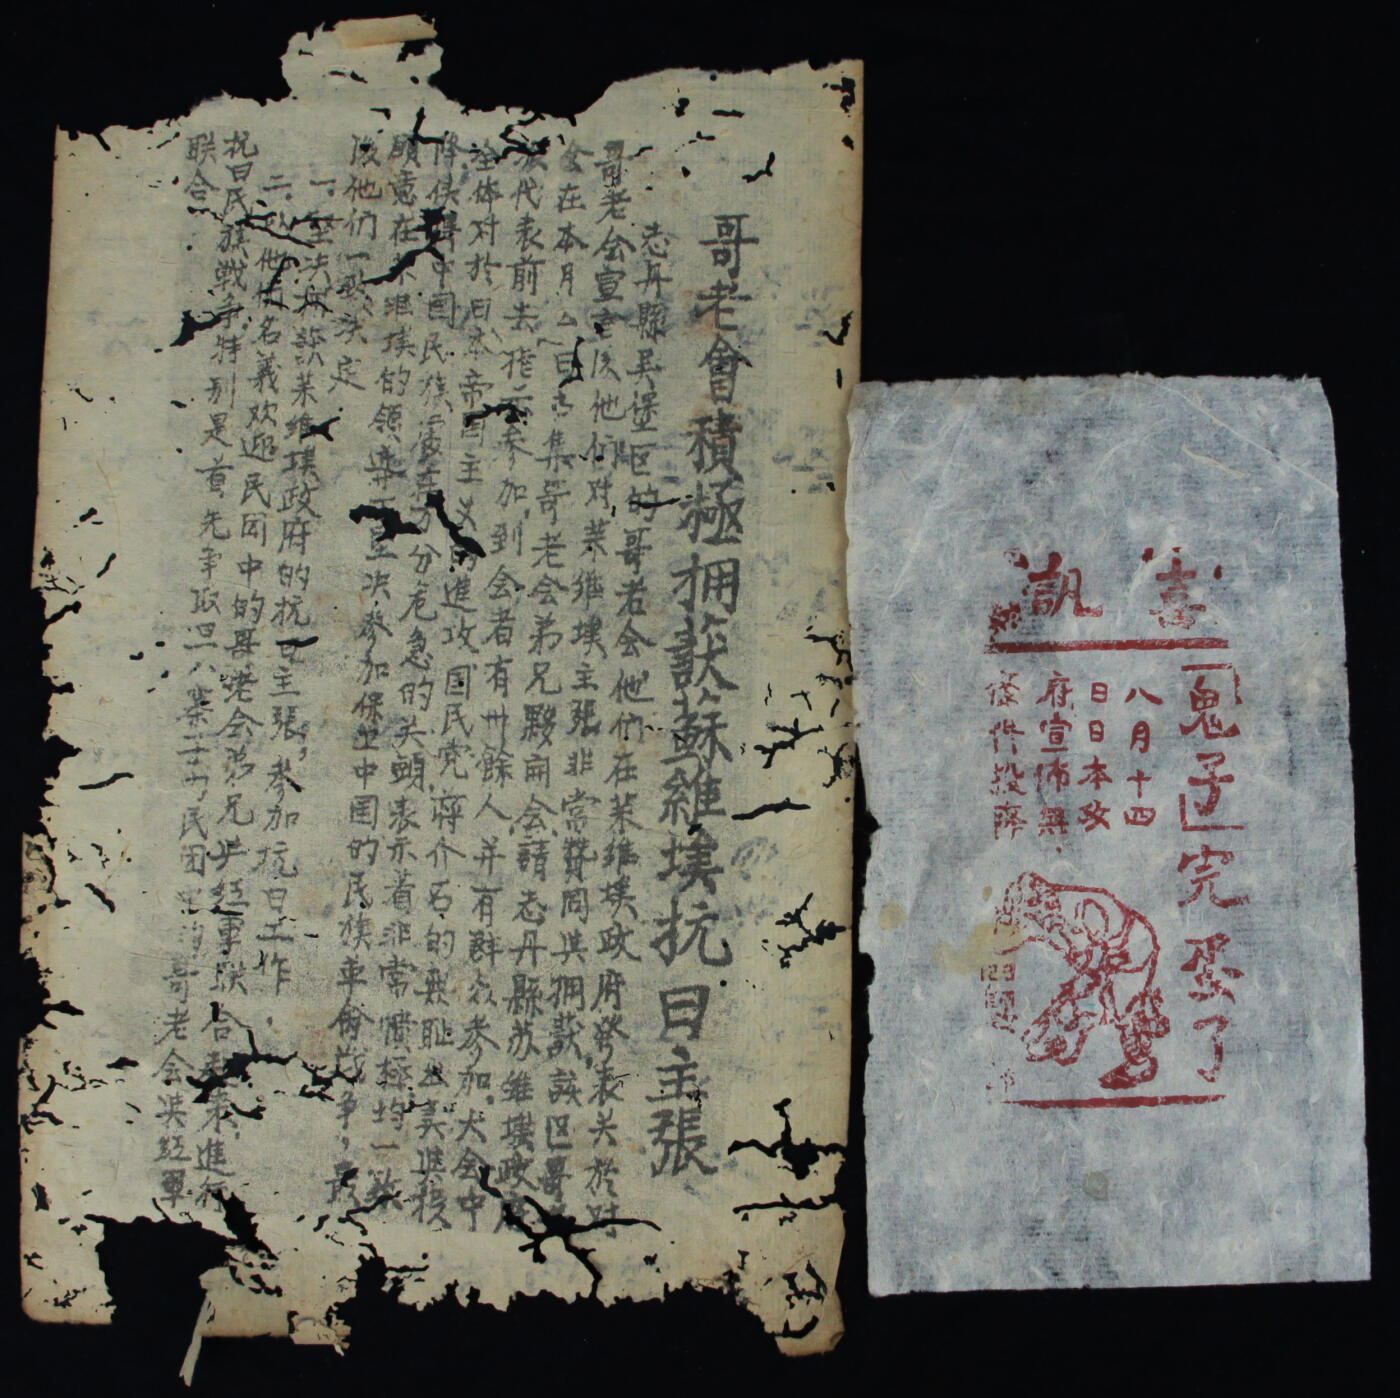 哥老會積極拥護蘇維埃抗日主張
志丹縣吴堡区的哥老会他们在苏维埃政府發表关於对
哥老会宣言后他们对苏维埃主張非常贊同与拥護該区哥老
会在本月 日召集哥老会弟兄夥开会請志丹縣苏维埃政府
派代表前去指示参加到会者有卅餘人并有群众参加大会中
全体对於日本帝国主义的進攻国民党蔣介石的無耻出卖与投
降使得中国民族 十分危急的关頭表示着非常憤極均一致
願意在苏维埃的領導下坚决参加保卫中国的民族革命战争，最
後他们一致决定
一.坚决拥護苏维埃政府的抗日主張，参加抗日工作，
二.以他们名義欢迎民团中的哥老会弟兄与红軍联合起来，進行
抗日民族战争特别是首先争取 民团中的哥老会与红軍
联合
喜訊
「鬼子」完蛋了
八月十四
日日本政
府宣佈無
條件投降